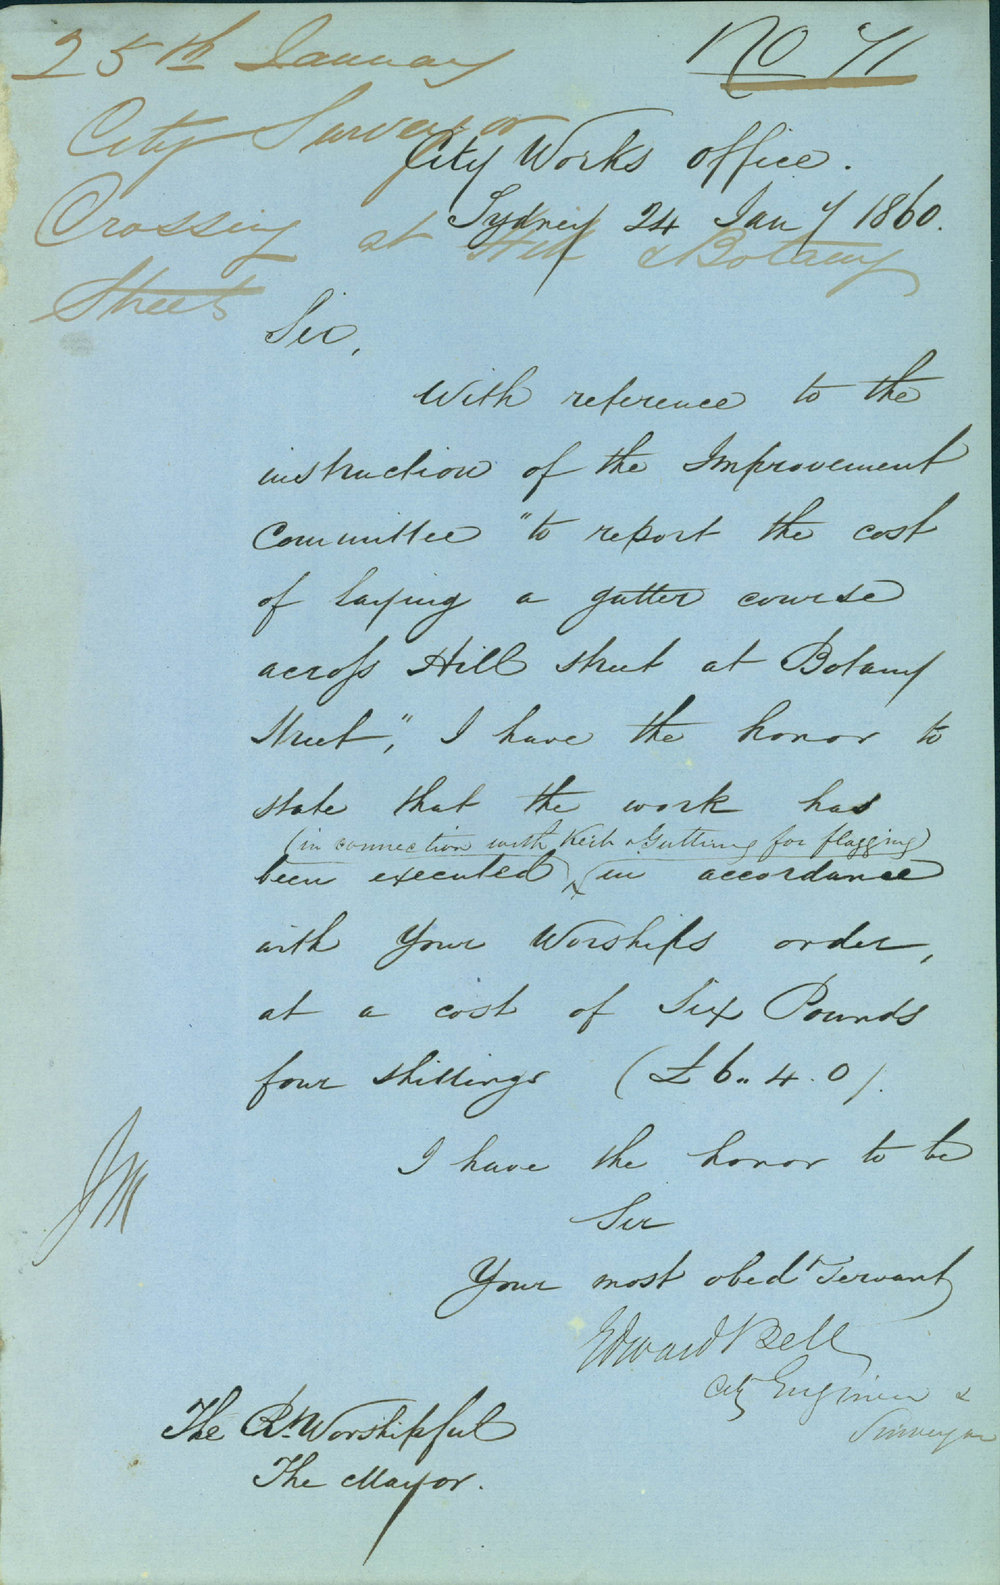 25th January
No 71
City Surveyor
City Works Office.
Sydney 24 Jany 1860.
Crossing at Hill & Botany
Streets
Sir,
With reference to the
instruction of the Improvement
Committee "to report the cost
of laying a gutter course
across Hill Street at Botany
Street," I have the honor to
state that the work has
(in connection with Kerb & Guttering for flagging)
been executed in accordance
with Your Worships order,
at a cost of Six Pounds
four shillings (£6.. 4. 0).
I have the honor to be
Sir
Your most obedt Servant
Edward Bell
City Engineer &
Surveyor
JM
The Rt. Worshipful
The Mayor.